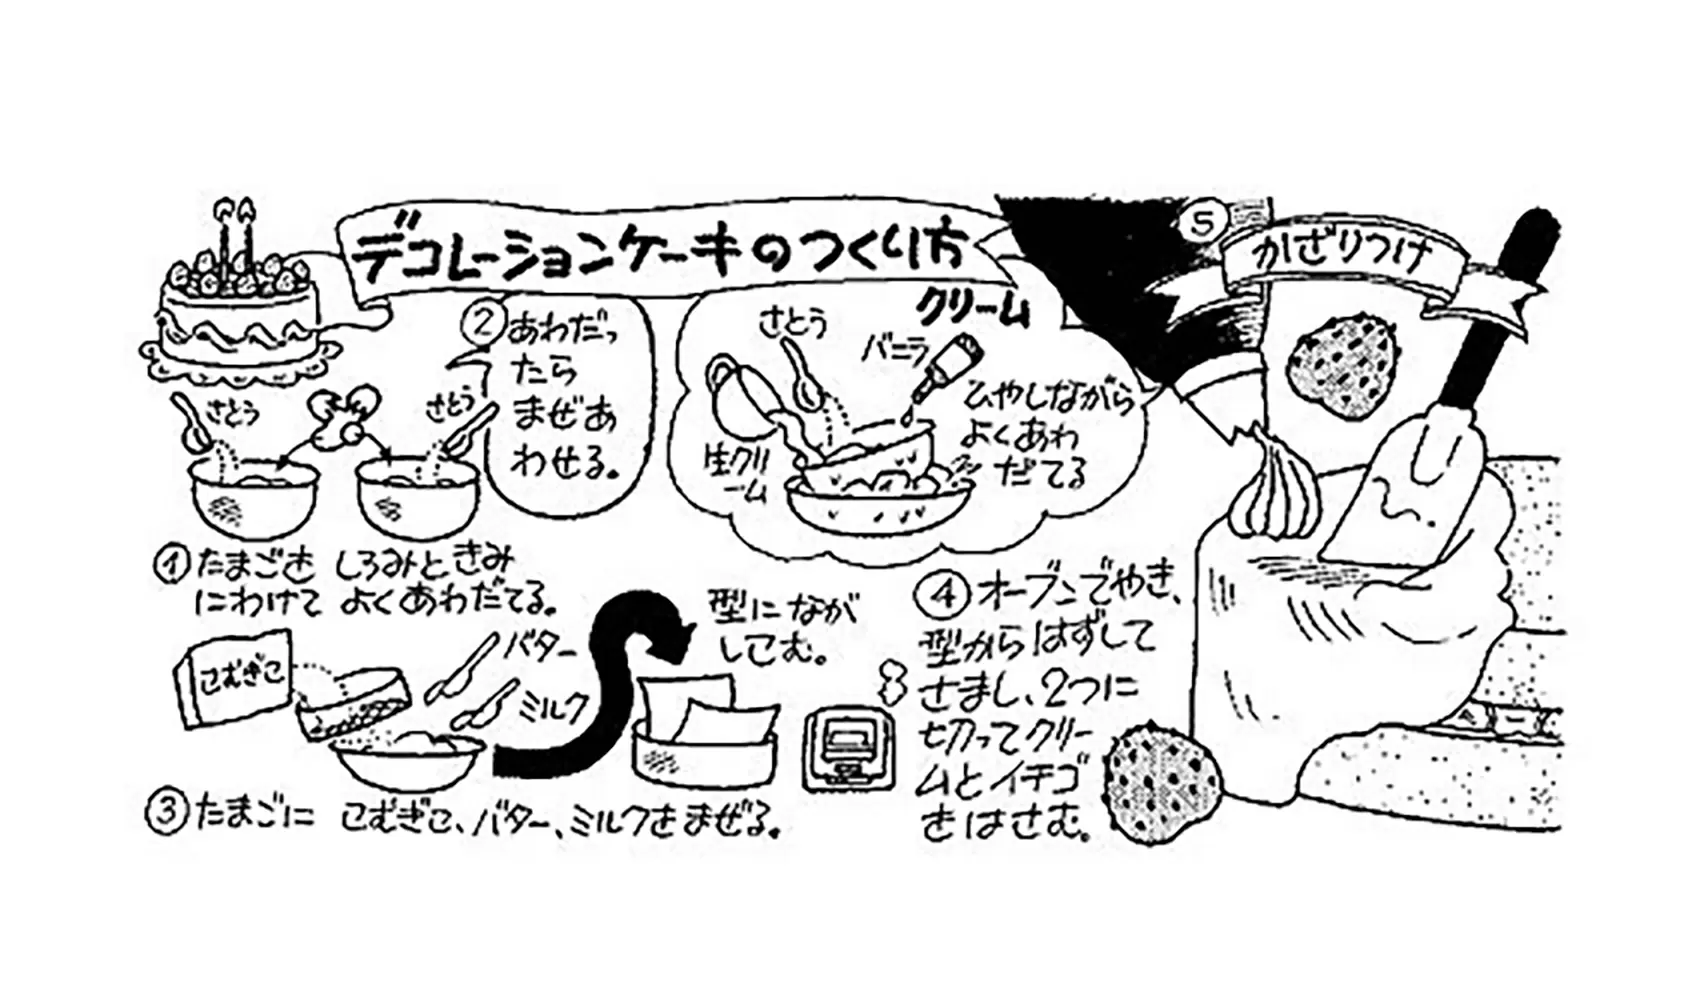 デコレーションケーキのつくり方
さとう
さとう
①たまごを しろみときみ
にわけて よくあわだてる。
②あわだっ
たら
まぜあ
わせる。
クリーム
さとう
バニラ
生クリ
ーム
ひやしながら
よくあわ
だてる
こむぎこ
バター
ミルク
③たまごに こむぎこ、バター、ミルクをまぜる。
型になが
しこむ。
④オーブンでやき、
型からはずして
さまし、2つに
切ってクリー
ムとイチゴ
をはさむ。
⑤
かざりつけ